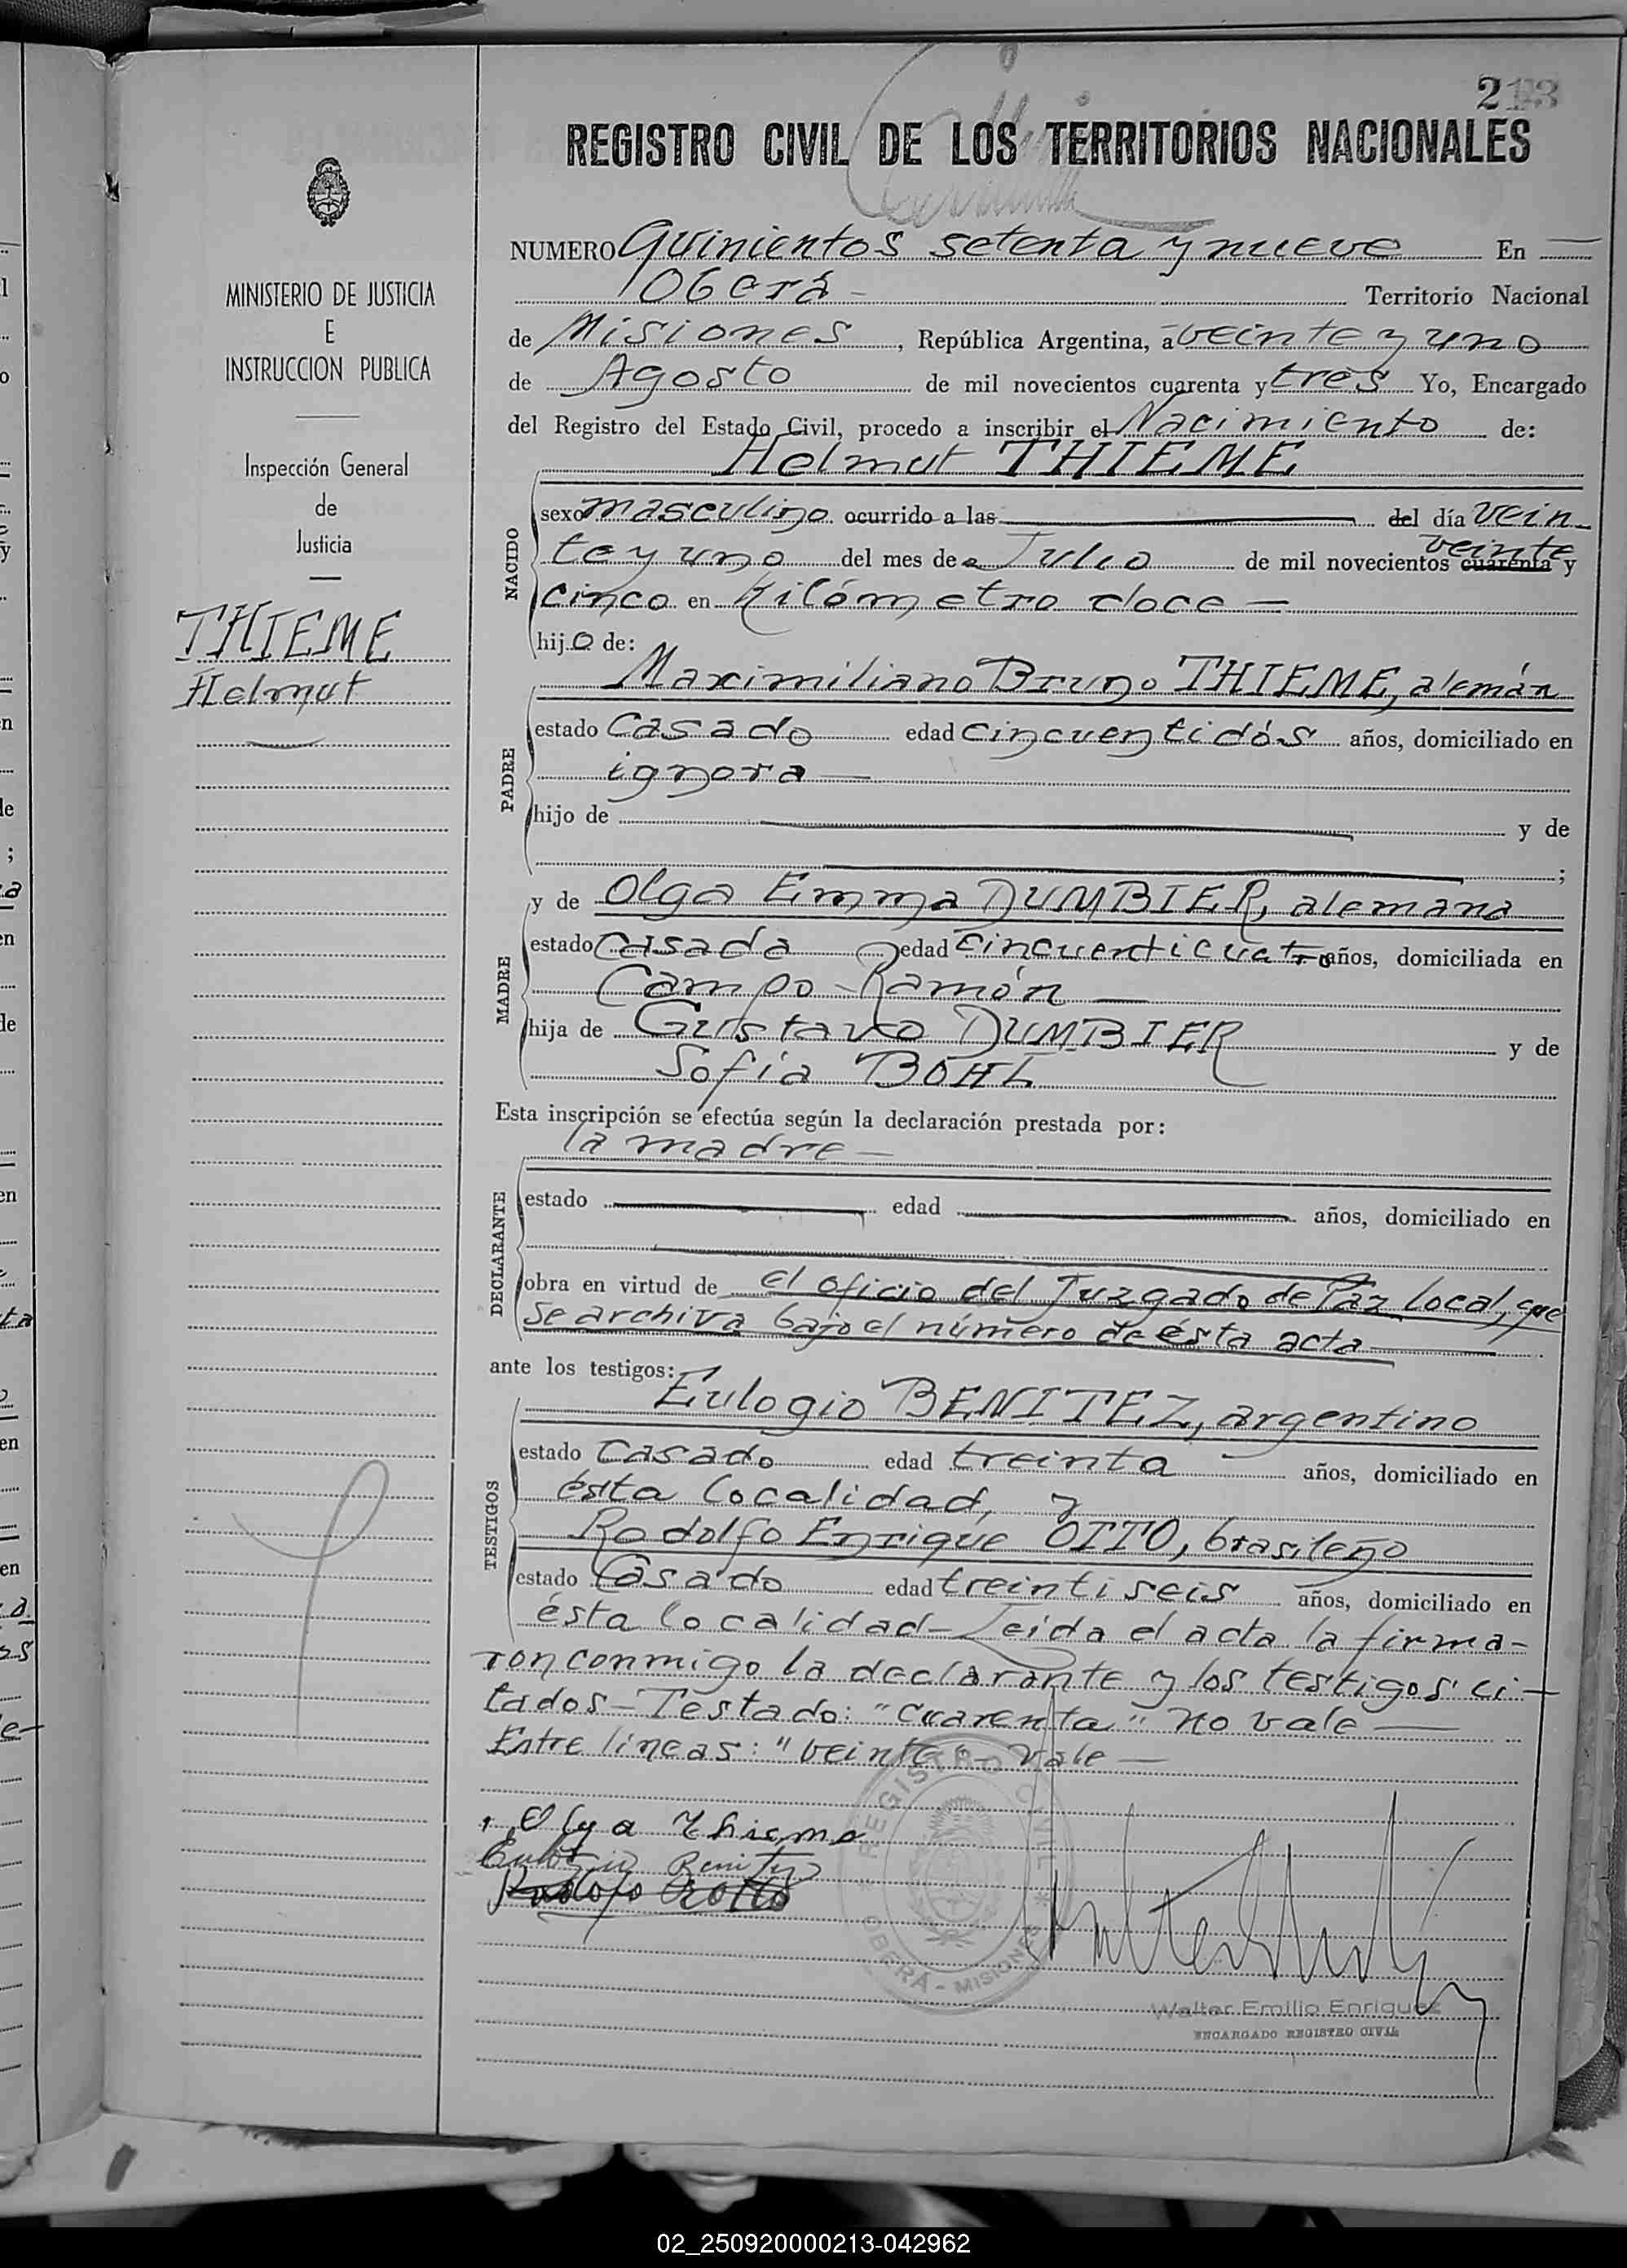 213
REGISTRO CIVIL DE LOS TERRITORIOS NACIONALES
MINISTERIO DE JUSTICIA
E
INSTRUCCION PUBLICA
Inspección General
de
Justicia
THIEME
Helmut
NUMERO Quinientos setenta y nueve En
Oberá - Territorio Nacional
de Misiones, República Argentina, a veinte y uno
de Agosto de mil novecientos cuarenta y tres Yo, Encargado
del Registro del Estado Civil, procedo a inscribir el Nacimiento de:
Helmut THIEME
NACIDO
sexo masculino ocurrido a las del día vein-
veinte
te y uno del mes de Julio de mil novecientos cuarenta y
cinco en Kilómetro doce -
hijo de:
PADRE
Maximiliano Bruno THIEME, alemán
estado casado edad cincuentidós años, domiciliado en
ignora
hijo de y de
;
MADRE
y de Olga Emma DUMBIER, alemana
estado casada edad cincuenticuatro años, domiciliada en
Campo Ramón
hija de Gustavo DUMBIER y de
Sofía BOHL
Esta inscripción se efectúa según la declaración prestada por:
la madre -
DECLARANTE
estado edad años, domiciliado en
obra en virtud de el oficio del Juzgado de Paz local, que
se archiva bajo el número de ésta acta
ante los testigos:
TESTIGOS
Eulogio BENITEZ, argentino
estado casado edad treinta años, domiciliado en
ésta localidad, y
Rodolfo Enrique OTTO, brasileño
estado Casado edad treintiseis años, domiciliado en
ésta localidad- Leída el acta la firma-
ron conmigo la declarante y los testigos ci-
tados - Testado: "cuarenta" no vale
Entre líneas: "veinte" - Vale -
Olga Thieme
Eulogio Benitez
Rodolfo Otto
REGISTRO CIVIL
OBERÁ - MISIONES
Walter Emilio Enriquez
ENCARGADO REGISTRO CIVIL
02_250920000213-042962